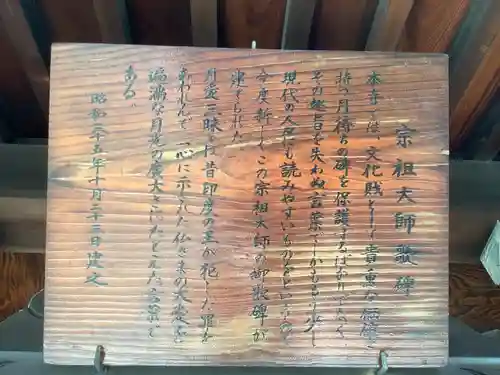 宗祖大師歌碑
本寺では、文化財として貴重な価値を
持つ月待ちの碑を保護するばかりでなく
その趣旨を失わぬ言葉でしかももう少し
現代の人々にも読みやすいものをということで
今度新しくこの宗祖大師の御歌碑が
建てられた
月愛三昧とは昔印度の王が犯した罪を
あわれんで一心に示された仏さまの大慈悲
遍満な月光の広大さにたとえた言葉で
ある。
昭和三十五年十月二十三日建之